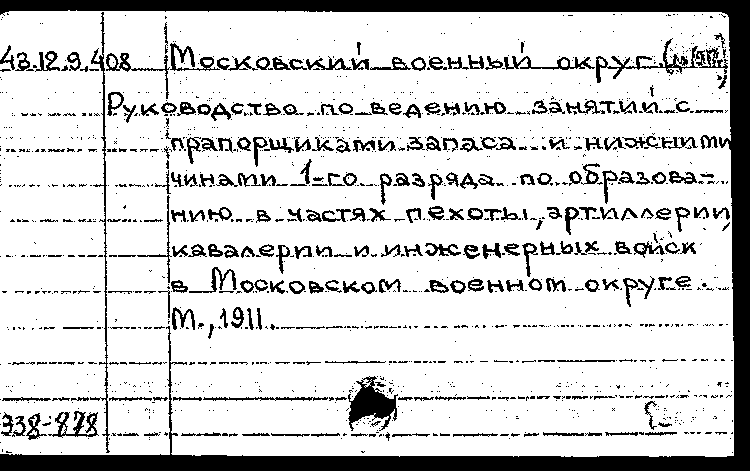 43.12.9.408 Московский военный округ (до 1917)
Руководство по ведению занятий с
прапорщиками запаса и нижними
чинами 1-го разряда по образова-
нию в частях пехоты, артиллерии,
кавалерии и инженерных войск
в Московском военном округе.
М., 1911.
338-878